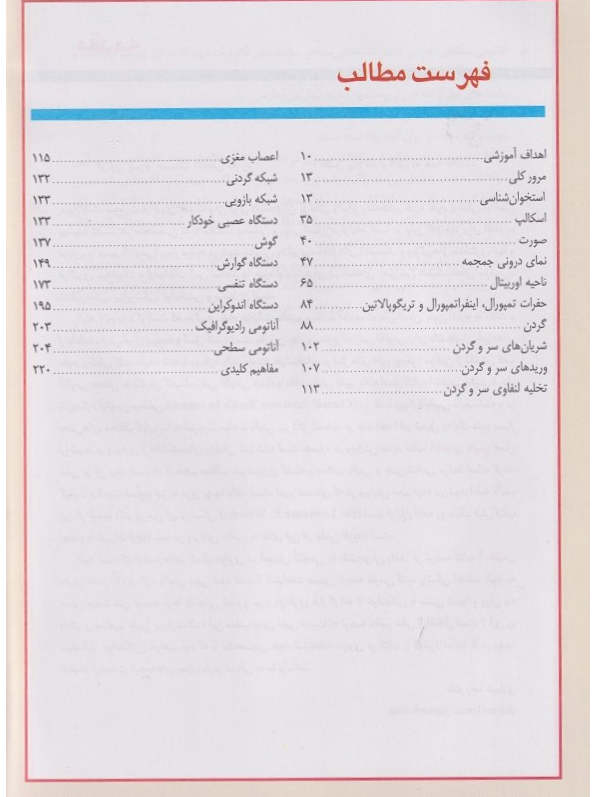 فهرست مطالب
اهداف آموزشی ۱۰
مرور کلی ۱۳
استخوان‌شناسی ۱۳
اسکالپ ۳۵
صورت ۴۰
نمای درونی جمجمه ۴۷
ناحیه اوربیتال ۶۵
حفرات تمپورال، اینفراتمپورال و تریگوپالاتین ۸۴
گردن ۸۸
شریان‌های سر و گردن ۱۰۲
وریدهای سر و گردن ۱۰۷
تخلیه لنفاوی سر و گردن ۱۱۳
اعصاب مغزی ۱۱۵
شبکه گردنی ۱۳۲
شبکه بازویی ۱۳۳
دستگاه عصبی خودکار ۱۳۳
گوش ۱۳۷
دستگاه گوارش ۱۴۹
دستگاه تنفسی ۱۷۳
دستگاه اندوکراین ۱۹۵
آناتومی رادیوگرافیک ۲۰۳
آناتومی سطحی ۲۰۴
مفاهیم کلیدی ۲۲۰